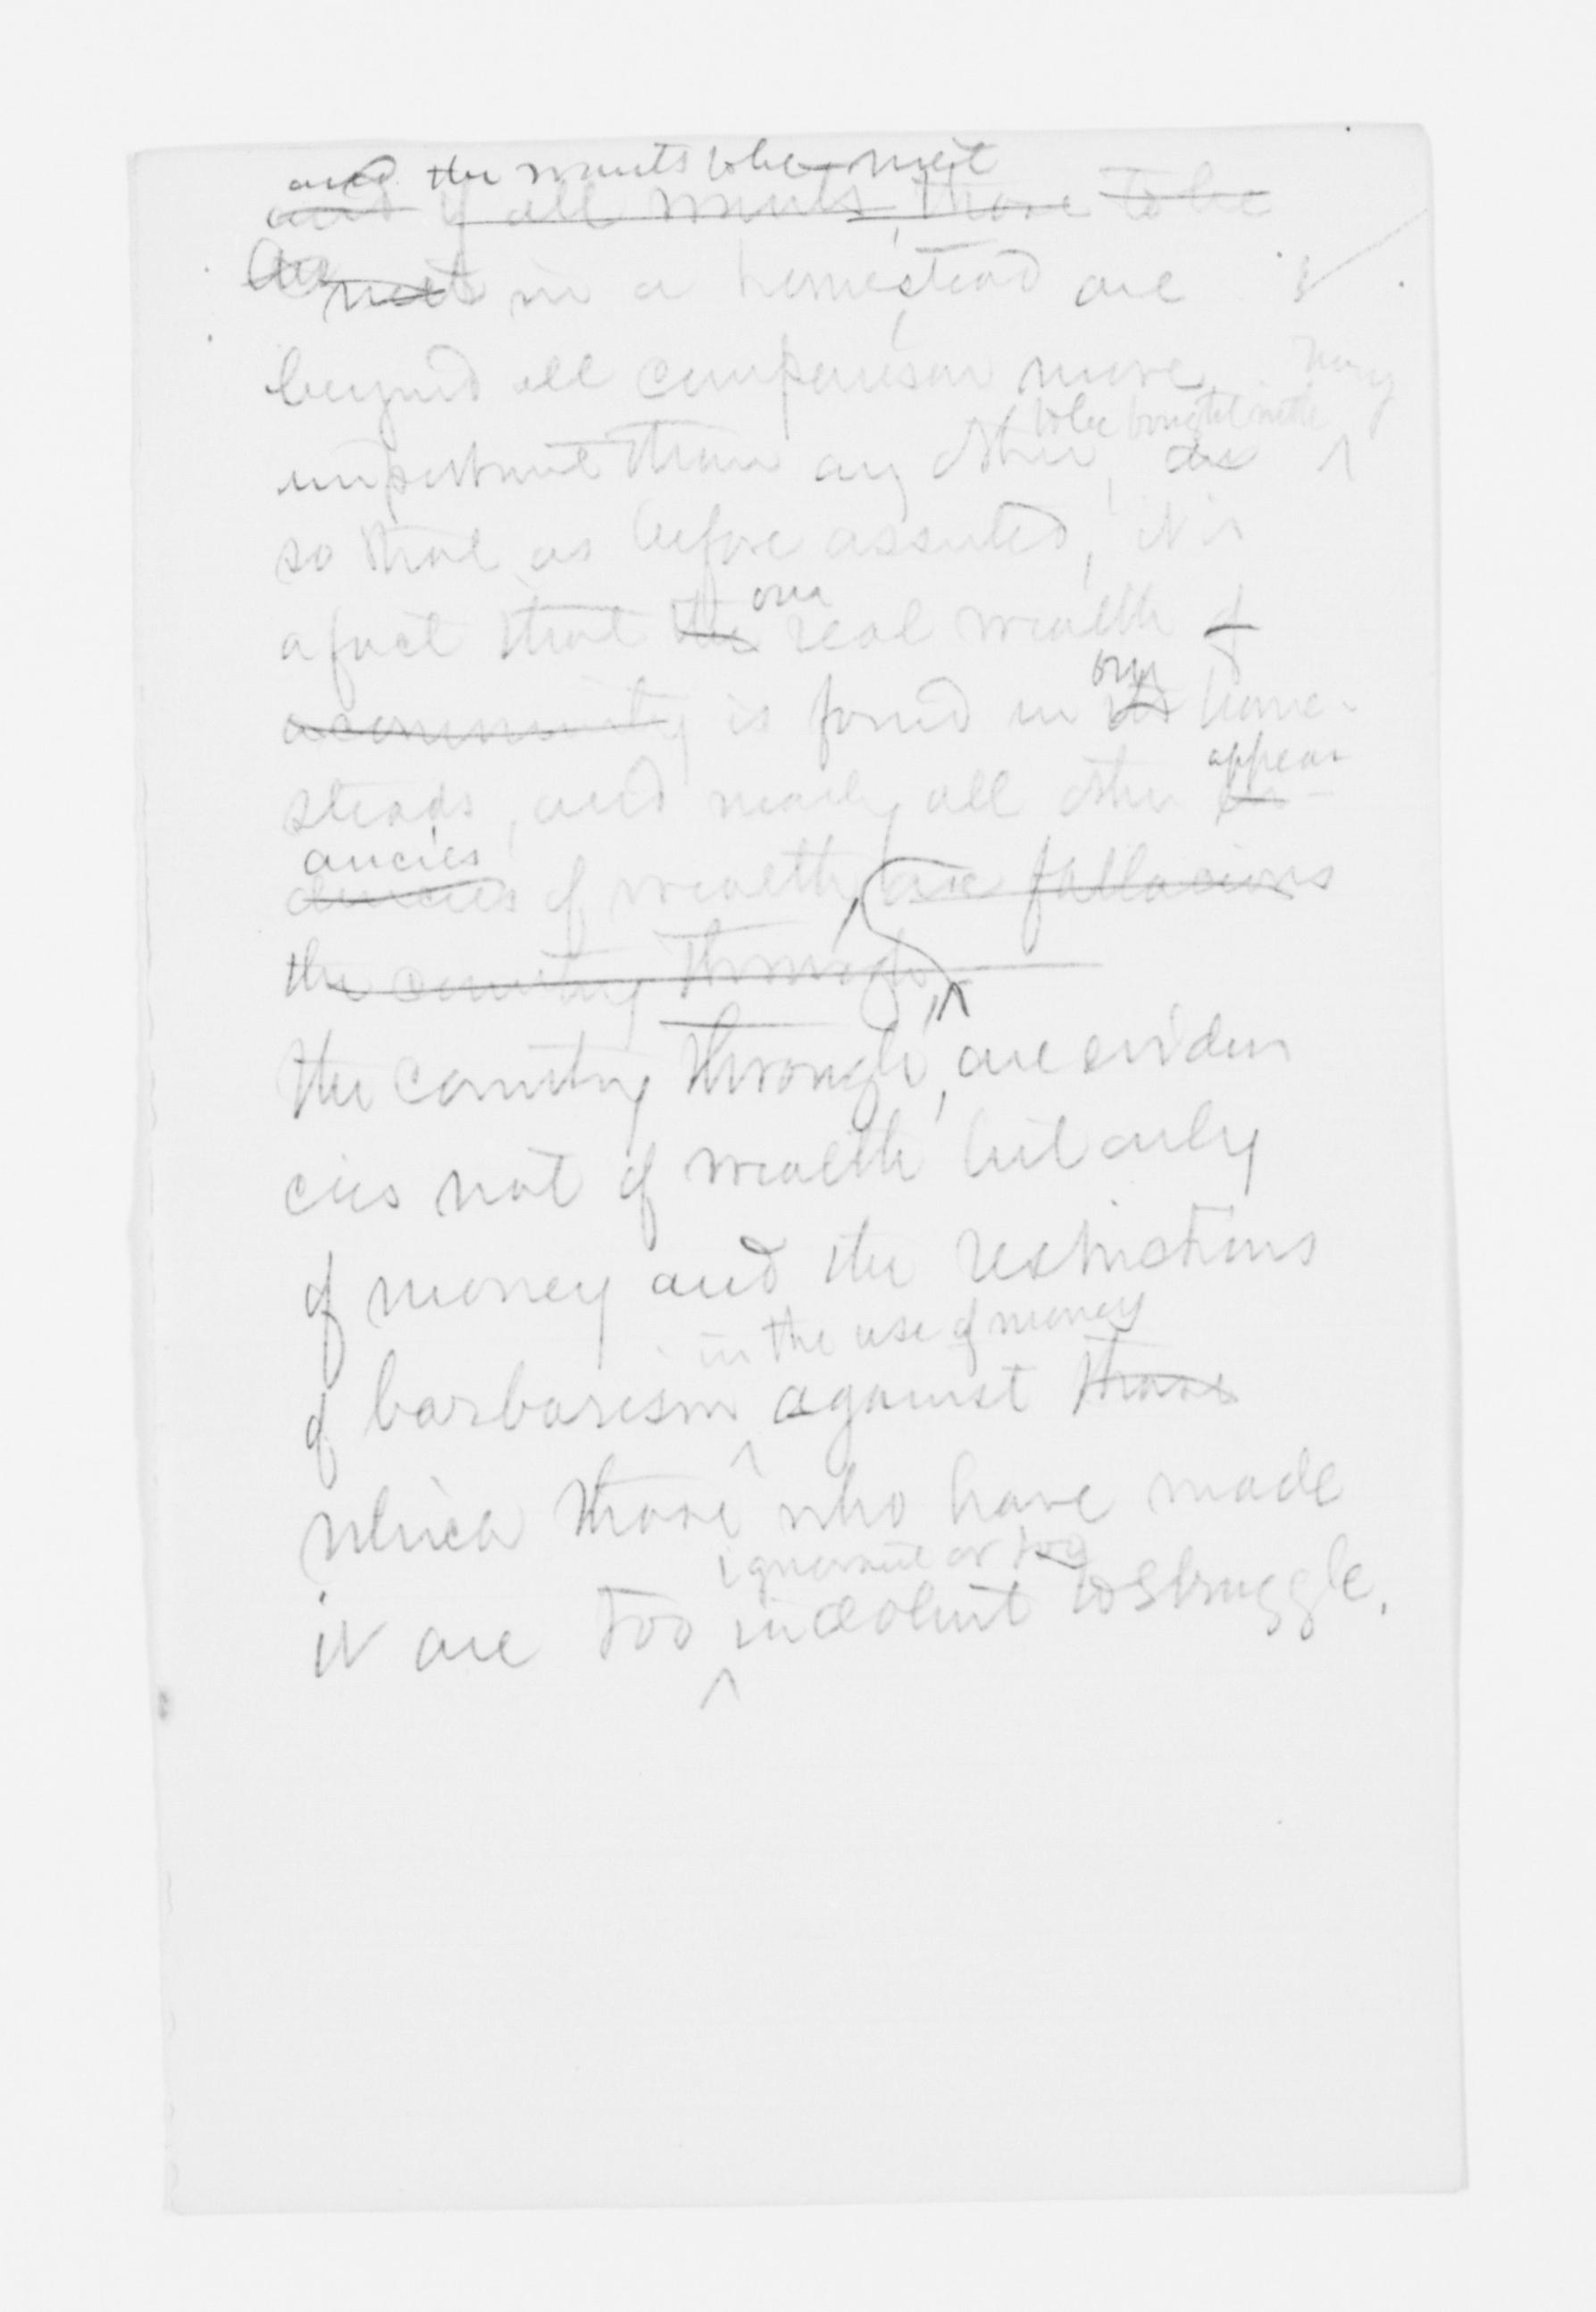 and the wants to be met
and if all wants, those to be
met in a homestead are
beyond all comparison more
to be bought with
important than any other,
so that as before asserted, it is
our
a fact that the real wealth of
our
a community is found in its home-
appear
steads, and nearly all other
ancies
dencies of wealth, are fallacious
the country through
the country through, are eviden
cies not of wealth but only
of money and the restrictions
in the use of money
of barbarism against those
which those who have made
ignorant or too
it are too indolent to struggle.